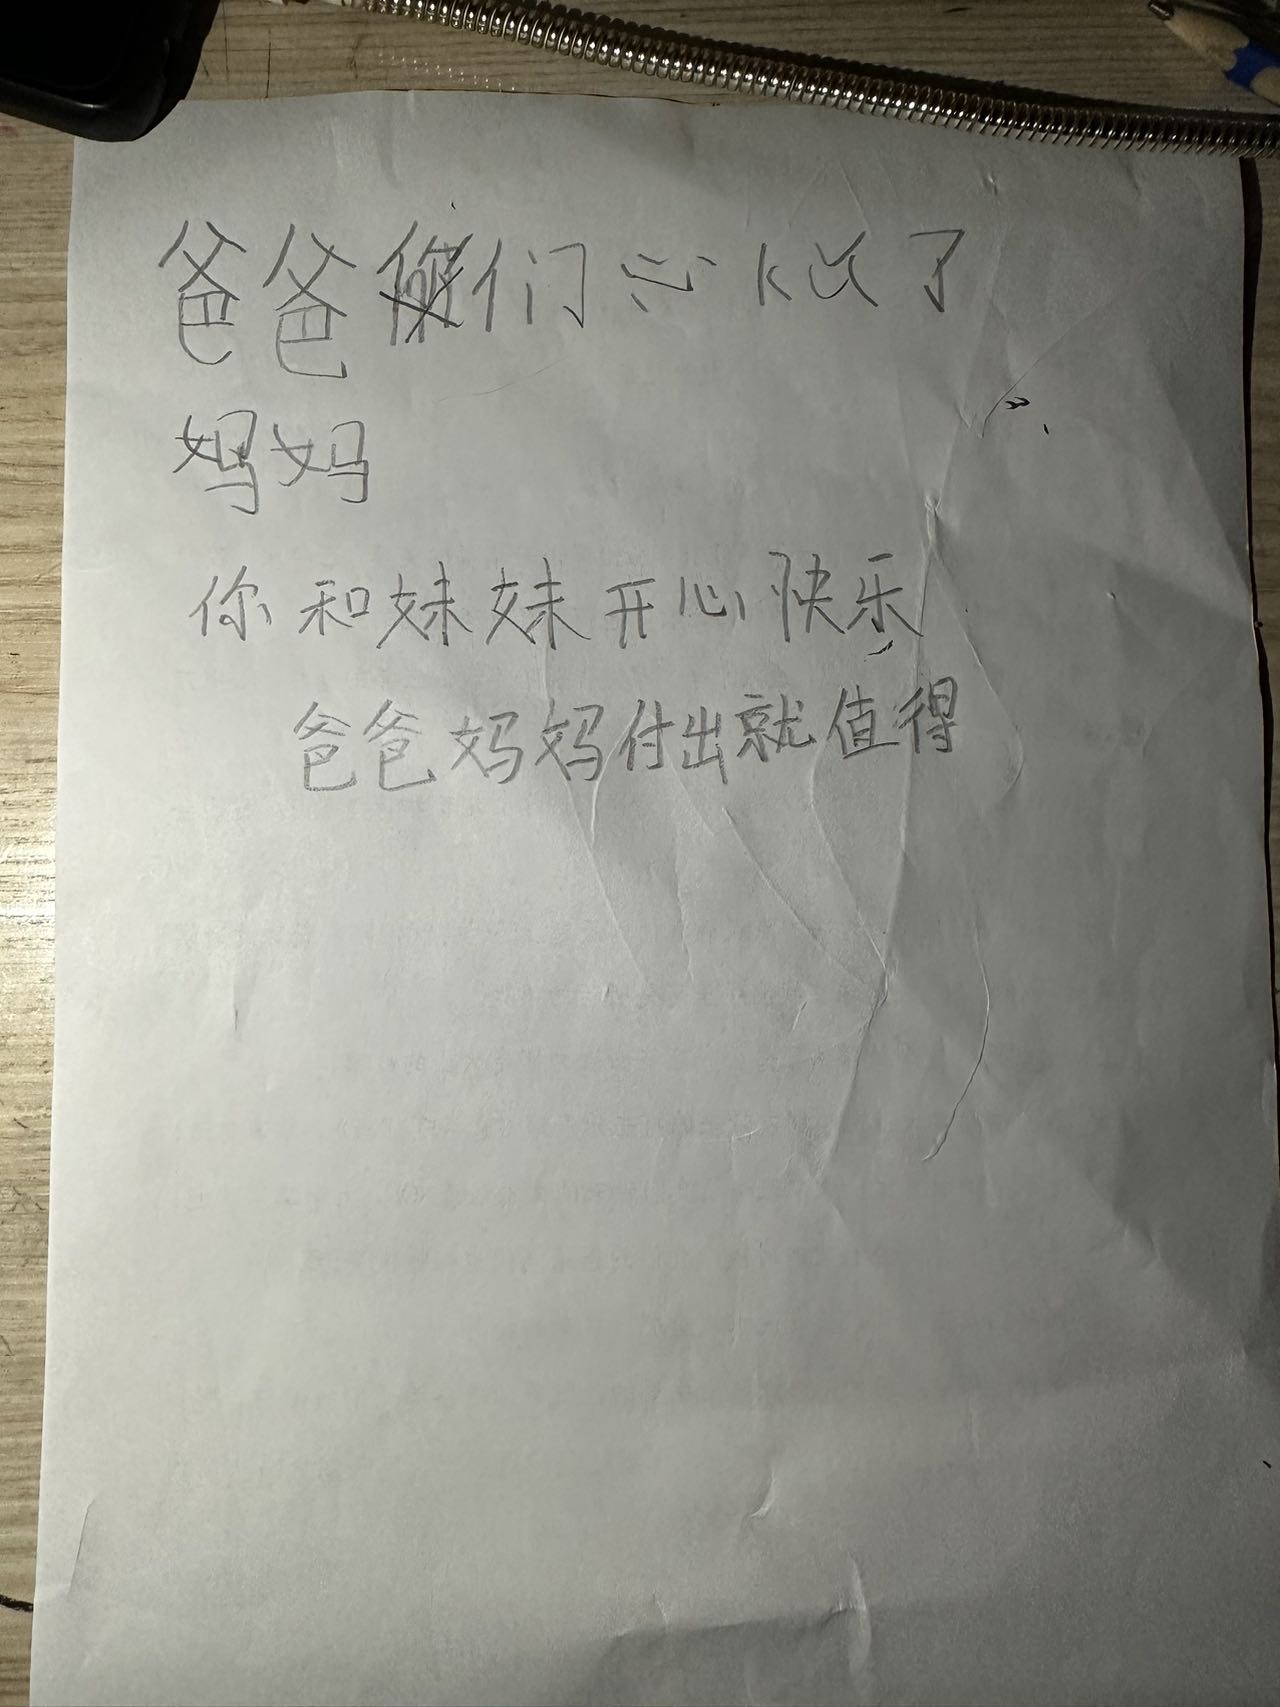 爸爸们心kǔ了
妈妈
你和妹妹开心快乐
爸爸妈妈付出就值得